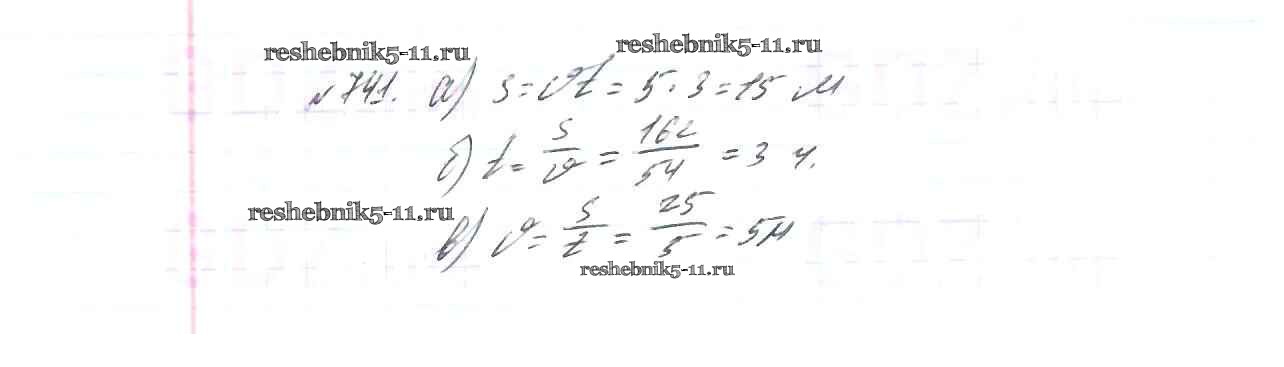 reshebnik5-11.ru reshebnik5-11.ru
№741. а) s=vt = 5·3=15 м
б) t= s/v = 162/54 = 3 ч.
reshebnik5-11.ru
в) v= s/t = 25/5 = 5м
reshebnik5-11.ru